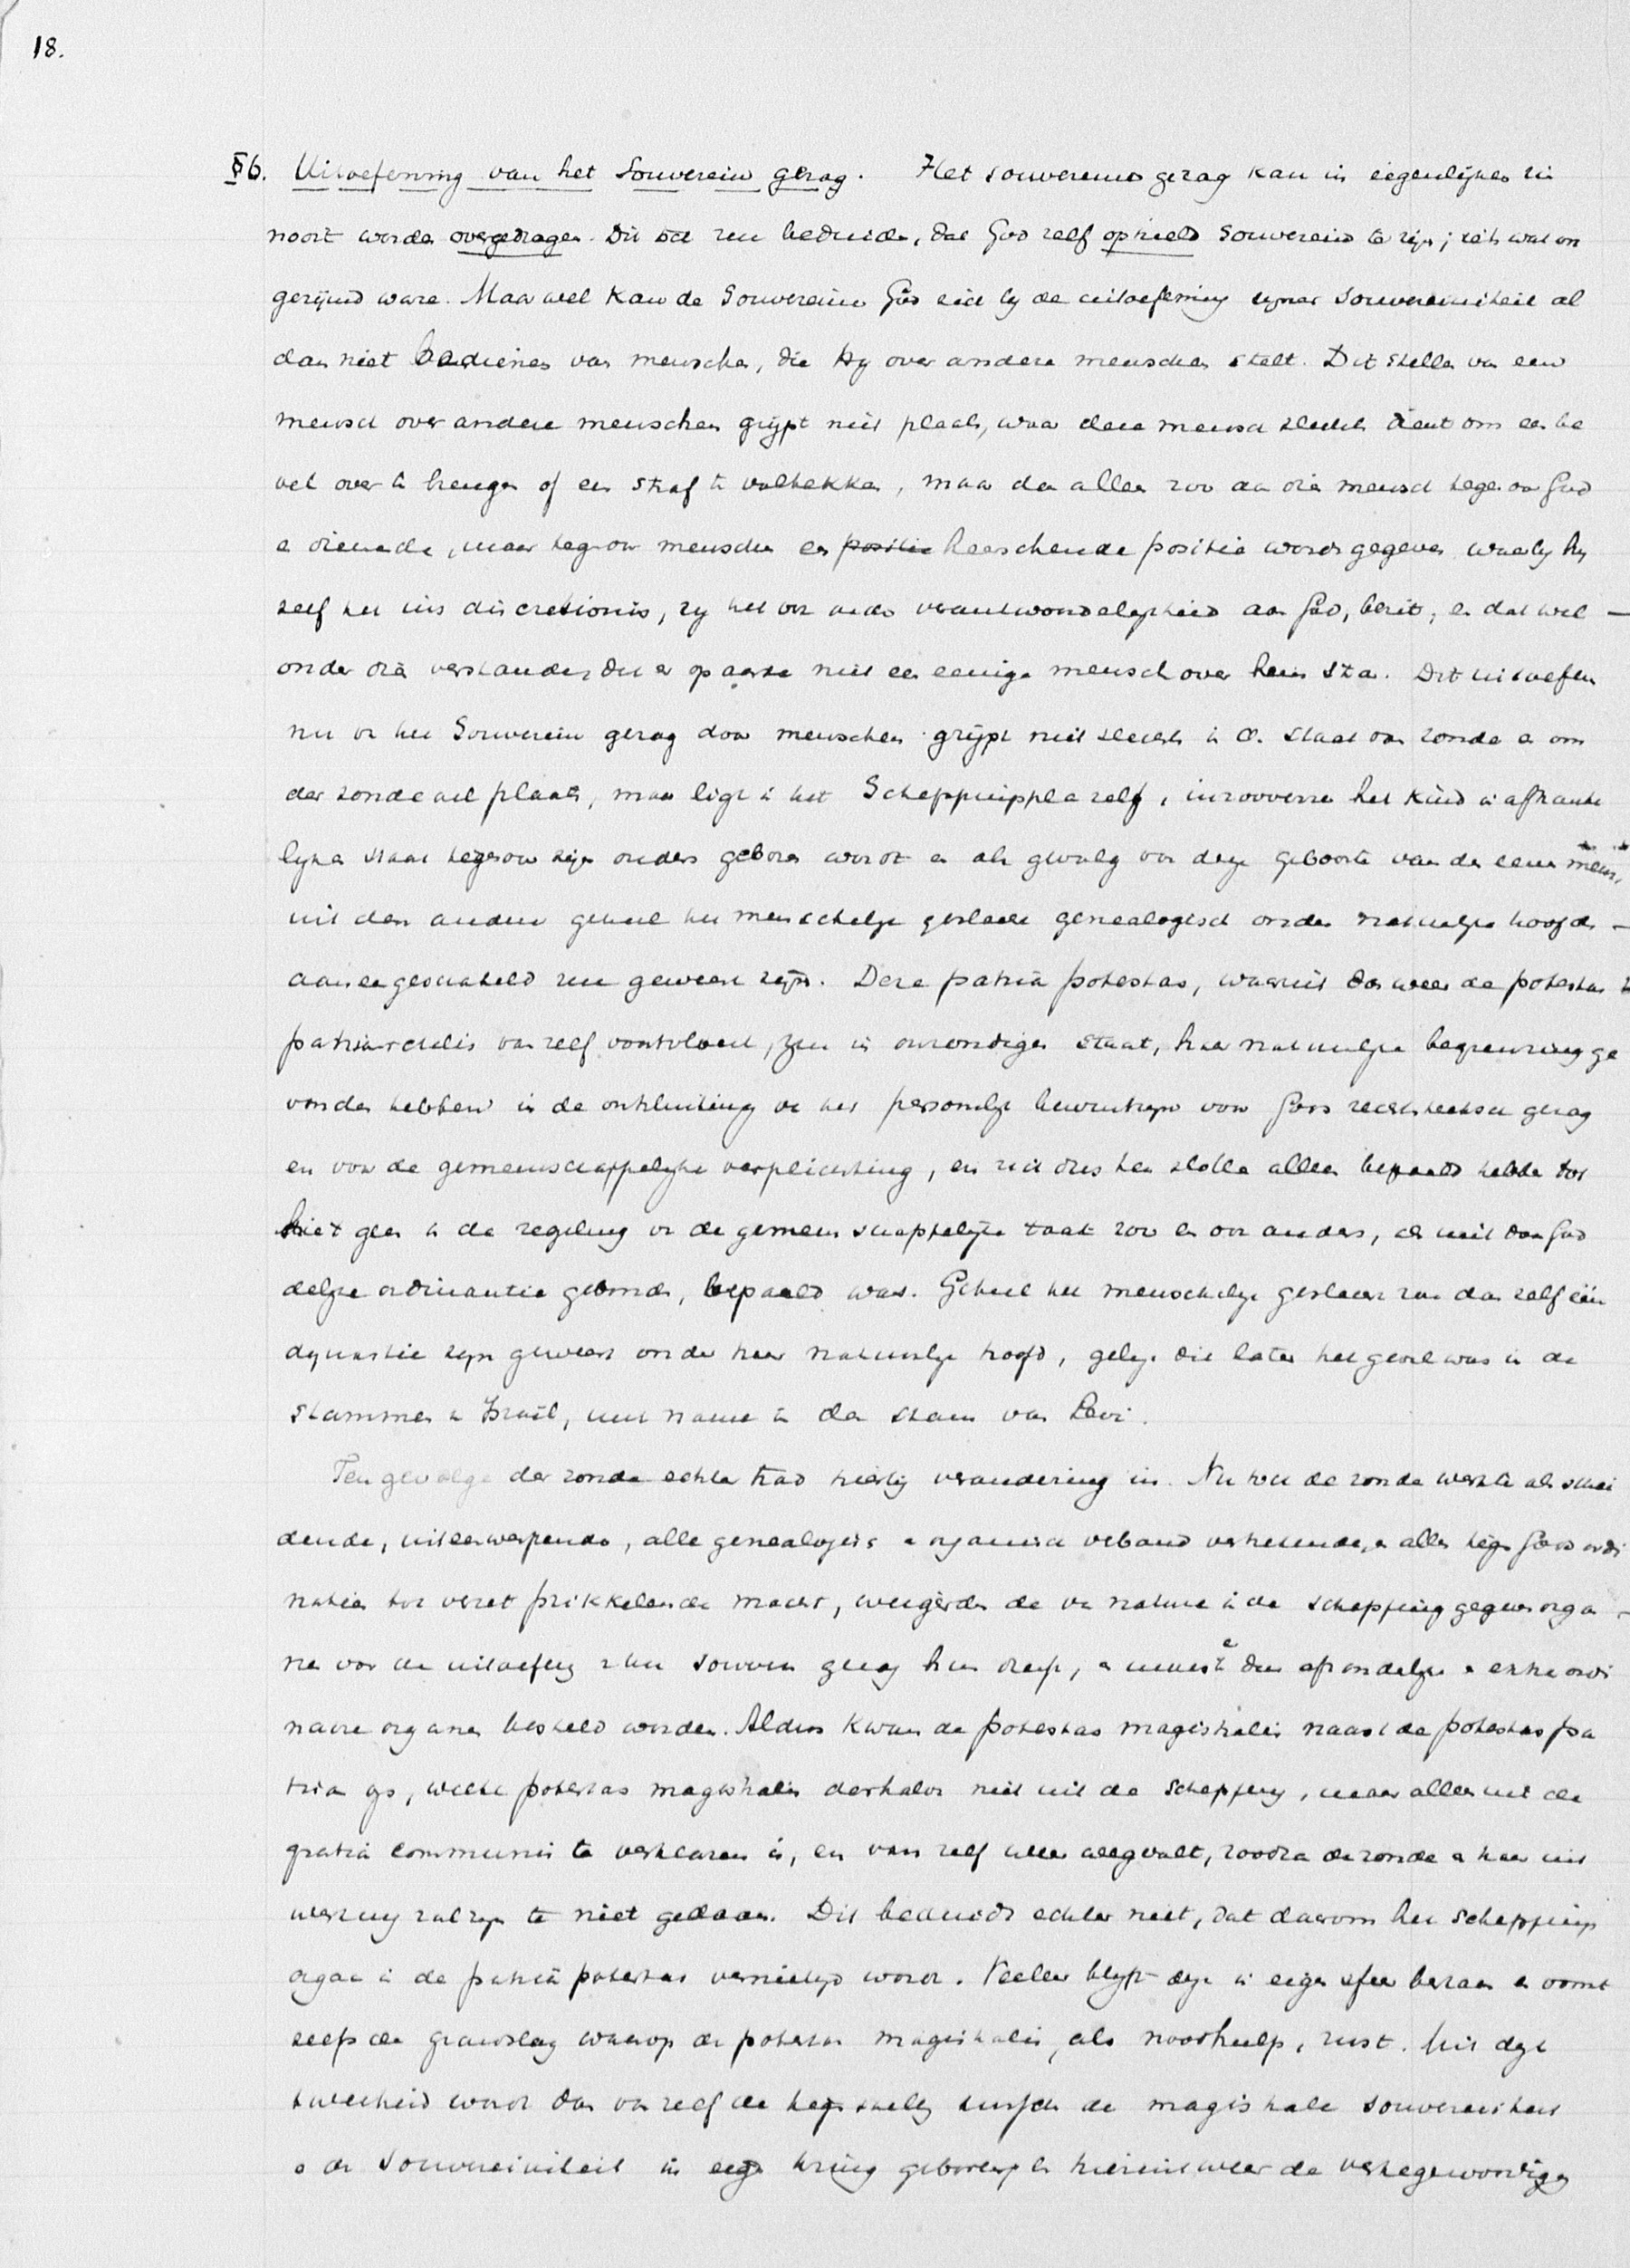 18.
§6. Uitoefening van het Souverein gezag. Het souverein gezag kan in eigenlijken zin
nooit worden overgedragen. Dit zou beduiden, dat God zelf ophield Souverein te zijn; iets wat on
gerijmd ware. Maar wel kan de Souvereine God zich bij de uitoefening zijner Souvereiniteit al
dan niet bedienen van menschen, die Hij over andere menschen stelt. Dit stellen van een
mensch over andere menschen grijpt niet plaats, waar deze mensch slechts dient om een be
vel over te brengen of een straf te voltrekken, maar dan alleen zoo aan die mensch tegenover God
een dienende, maar tegenover menschen een positie heerschende positie wordt gegeven waarbij hij
zelf het ius discretionis, zij het ook onder verantwoordelijkheid aan God, bezit, en dat wel —
onder dien verstande, dat er op aarde niet een eenige mensch over hem sta. Dit uitoefenen
nu van het Souverein gezag door menschen grijpt niet slechts in den staat van zonde en om
der zonde wil plaats, maar ligt in het Scheppingsplan zelf, inzooverre het kind in afhanke
lijken staat tegenover zijn ouders geboren wordt en als gevolg van deze geboorte van den eenen mensch
uit den anderen geheel het menschelijk geslacht genealogisch onder natuurlijke hoofden —
aaneengeschakeld zou geweest zijn. Deze patria potestas, waaruit dan weer de potestas
patriarchalis van zelf voortvloeit, zou in onzondigen staat, haar natuurlijke begrenzing ge
vonden hebben in de ontsluiting van het persoonlijk bewustzijn voor Gods rechtstreeksch gezag
en voor de gemeenschappelijke verplichting, en zich dus ten slotte alleen bepaald hebben tot
hetgeen in de regeling van de gemeenschappelijke taak zoo en niet anders, als niet door God
delijke ordinantie gebonden, bepaald was. Geheel het menschelijk geslacht zou dan zelf één
dynastie zijn geweest onder haar natuurlijk hoofd, gelijk dit later het geval was in de
stammen in Israël, met name in den stam van Levi.
Ten gevolge der zonde echter trad hierbij verandering in. Nu toch de zonde werkte als schei
dende, uiteenwerpende, alle genealogisch en organisch verband verstorende, en allen tegen Gods ordi
nantie tot verzet prikkelende macht, weigerden de van nature in de schepping gegeven orga —
nen voor de uitoefening van het souverein gezag hun dienst, en moesten dus afzonderlijke en extraordi
naire organen besteld worden. Aldus kwam de potestas magistralis naast de potestas pa
tria op, welke potestas magistralis derhalve niet uit de Schepping, maar alleen uit de
gratia communis te verklaren is, en van zelf weer wegvalt, zoodra de zonde en haar uit
werking zal zijn te niet gedaan. Dit beduidt echter niet, dat daarom het Scheppings
orgaan in de patria potestas vernietigd wordt. Veeleer blijft deze in eigen sfeer bestaan en vormt
zelfs de grondslag waarop de potestas magistralis, als noodhulp, rust. Uit deze
tweeheid wordt dan van zelf de tegenstelling tusschen de magistrale souvereiniteit
en de Souvereiniteit in eigen kring geboren, en hieruit weer de vertegenwoordiging